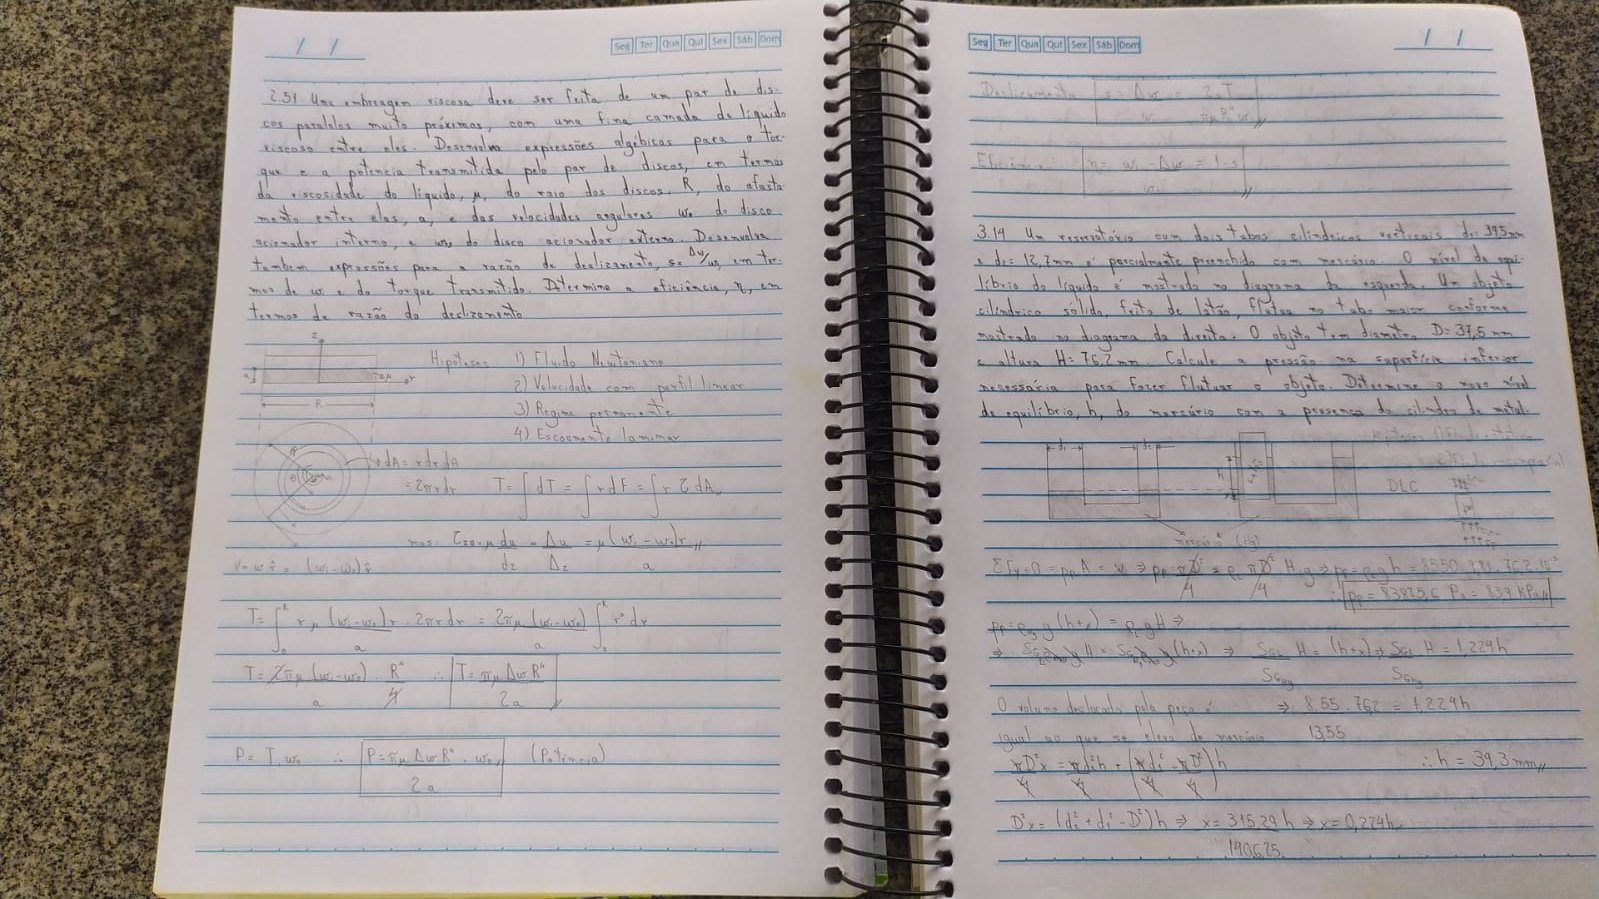 / /
Seg Ter Qua Qui Sex Sáb Dom
2.51 Uma embreagem viscosa deve ser feita de um par de dis-
cos paralelos muito próximos, com uma fina camada de líquido
viscoso entre eles. Desenvolva expressões algébicas para o tor-
que e a potência transmitida pelo par de discos, em termos
da viscosidade do líquido, μ, do raio dos discos, R, do afasta-
mento entre elas, a, e das velocidades angulares do disco
acionador interno, e do disco acionador externo. Desenvolva
também expressões para a razão de deslizamento, s= Δω/ωi, em ter-
mos de ωi e do torque transmitido. Determine a eficiência, η, em
termos de razão do deslizamento
z
Hipóteses: 1) Fluido Newtoniano
2) Velocidade com perfil linear
R
3) Regime permanente
4) Escoamento laminar
dA = r dr dθ
= 2πr dr T = ∫dT = ∫r dF = ∫r τ dA
mas: du = Δu = μ(ωi - ωo)r
dz Δz a
T = ∫₀ᴿ r μ (ωi-ωo) r . 2πr dr = 2πμ (ωi-ωo) ∫₀ᴿ r³ dr
a a
T = 2πμ (ωi-ωo) . R⁴ ∴ T = πμ Δω R⁴
a 4 2a
P = T ωo ∴ P = πμ Δω R⁴ . ωo (Potência)
2a
/ /
Seg Ter Qua Qui Sex Sáb Dom
Deslizamento s = Δω = 2aT
ωi πμR⁴ωi
Eficiência: η = ωi - Δω = 1-s
ωi
3.14 Um reservatório com dois tubos cilíndricos verticais d₁= 39,5mm
e d₂= 12,7mm é parcialmente preenchido com mercúrio. O nível de equi-
líbrio do líquido é mostrado no diagrama da esquerda. Um objeto
cilíndrico sólido, feito de latão, flutua no tubo maior conforme
mostrado no diagrama da direita. O objeto tem diâmetro D= 37,5 mm
e altura H= 76,2 mm. Calcule a pressão na superfície inferior
necessária para fazer flutuar o objeto. Determine o novo nível
de equilíbrio, h, do mercúrio com a presença do cilindro de metal.
d₁ d₂ h
DLC
mercúrio (Hg)
ΣFy=0 = pp A = W ⇒ pp πD² = ρL πD² H g ⇒ pp = ρL g h = 8550 . 9,81 . 76,2 . 10⁻³
4 4 ∴ pp = 83875,6 Pa = 83,9 kPa
g(h+x) = ρL g H ⇒
⇒ H = (h+x) ⇒ SGL H = (h+x) ⇒ SGL H = 1,224h
SGHg SGHg
O volume deslocado pela peça é ⇒ 8,55 . 76,2 = 1,224h
igual ao que se eleva de mercúrio 13,55
πD²x = πd₂²h + (πd₁² - πD²)h ∴ h = 39,3 mm
4 4 4 4
D²x = (d₂² + d₁² - D²)h ⇒ x = 315,29 h ⇒ x = 0,224h